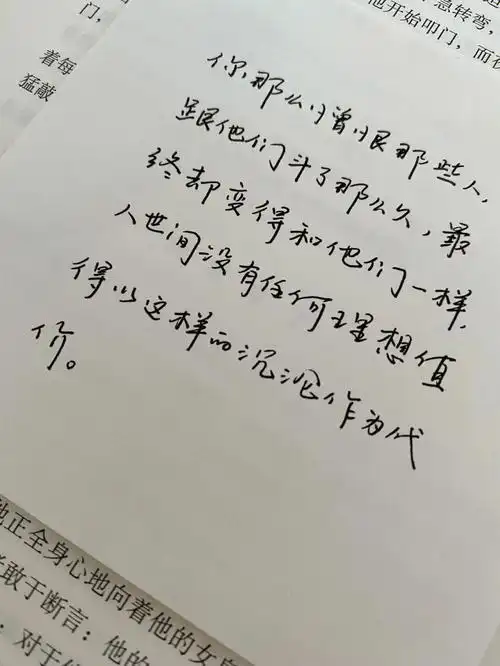 急转弯,
他开始叩门,而
门,
着每
猛敲
你那么憎恨那些人,
跟他们斗了那么久,最
终却变得和他们一样,
人世间没有任何理想值
得以这样的沉沦作为代
价。
他正全身心地向着他的女
敢于断言:他的
:对于